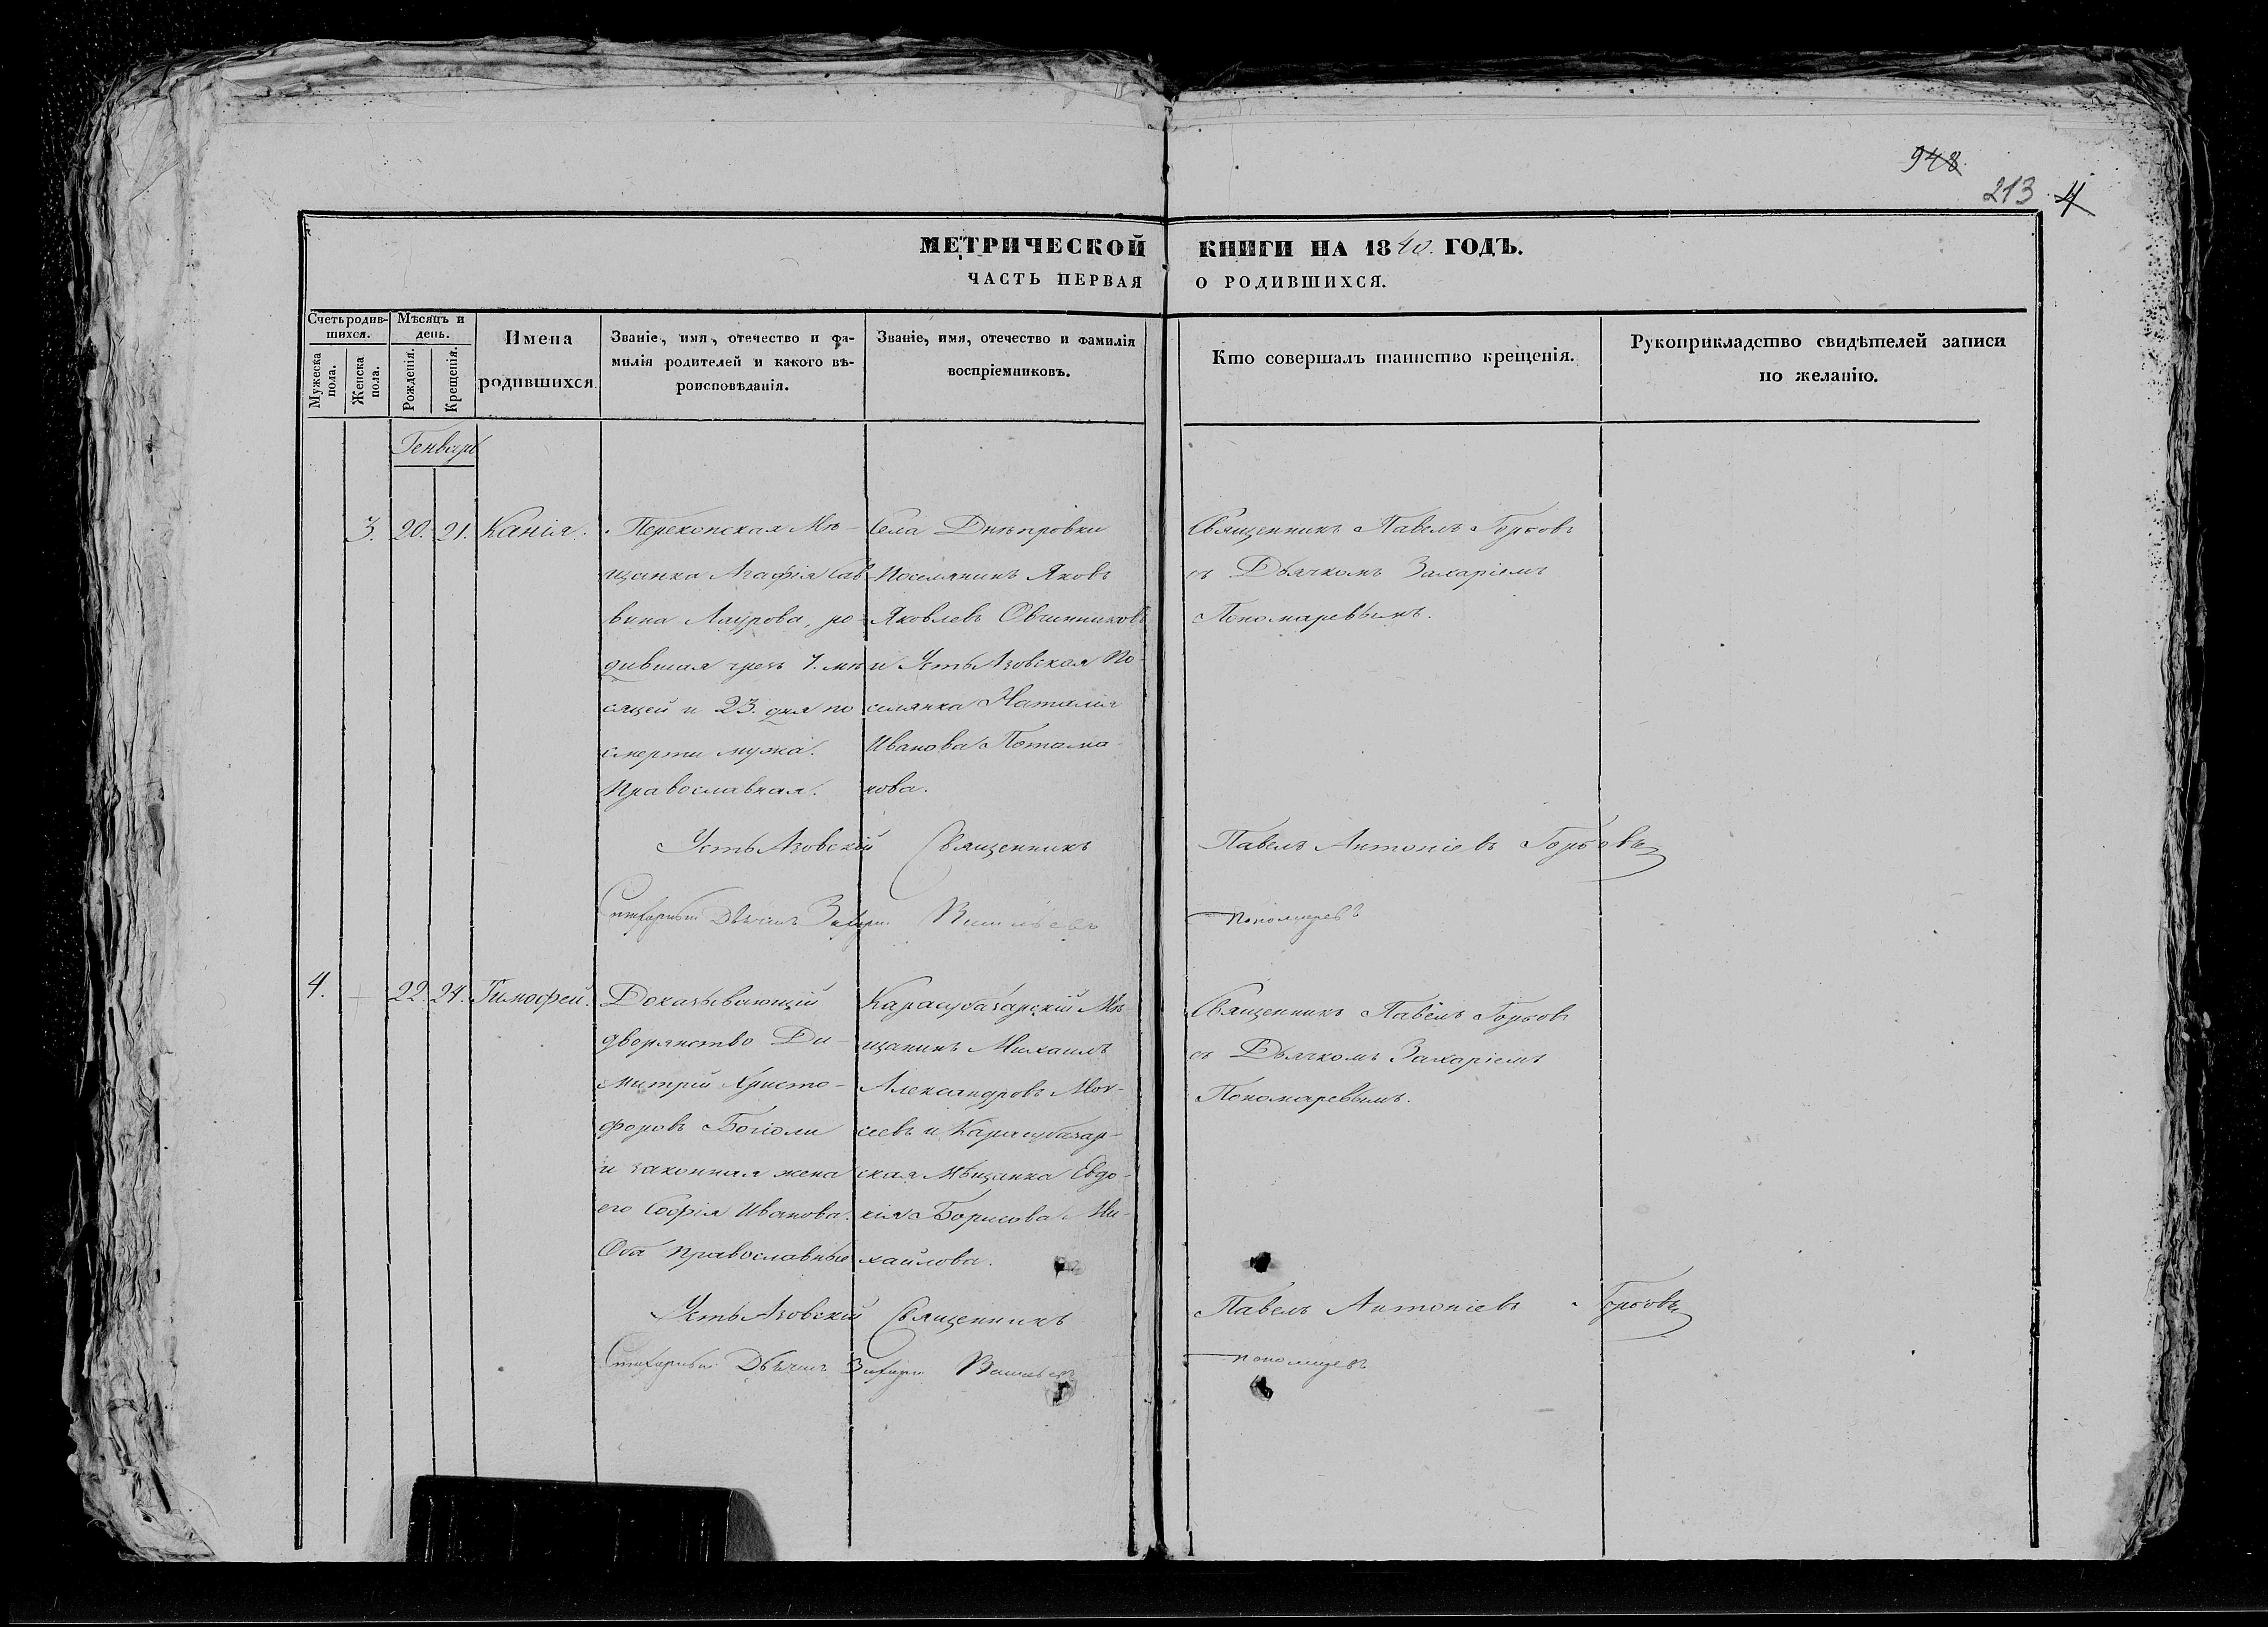 948
213 4
МЕТРИЧЕСКОЙ КНИГИ НА 1840. ГОДЪ.
ЧАСТЬ ПЕРВАЯ О РОДИВШИХСЯ.
Счетъ родив-
шихся.
Мужеска
пола.
Женска
пола.
Мѣсяцъ и
день.
Рожденія.
Крещенія.
Имена
родившихся.
Званіе, имя, отечество и фа-
милія родителей и какого вѣ-
роисповѣданія.
Званіе, имя, отечество и фамилія
воспріемниковъ.
Кто совершалъ таинство крещенія.
Рукоприкладство свидѣтелей записи
по желанію.
Генварь
3. 20. 21.
Перекопская Мѣ-
щанка Агафія Сав-
вина Лаурова, ро-
дившая чрезъ 7. мѣ-
сяцей и 23. дня по
смерти мужа.
Православная.
Села Днѣпровки
Поселянинъ Яковъ
Яковлевъ Овчинниковъ
и Усть Азовская По-
селянка Наталия
Иванова Потома-
нова.
Священникъ Павелъ Горбовъ
съ Дьячкомъ Захаріемъ
Пономаревымъ.
Усть Азовскій Священникъ Павелъ Антоніевъ Горбовъ
Стихарный Дьячокъ Захарій Васильевъ Пономаревъ
4. 22. 24. Тимофей.
Доказывающій
дворянство Ди-
митрій Христо-
форовъ
и законная жена
его Софія Иванова.
Оба православные
Карасубазарскій Мѣ-
щанинъ Михаилъ
Александровъ Мои-
сеевъ и Карасубазар-
ская Мѣщанка Евдо-
кія Борисова Ми-
хайлова.
Священникъ Павелъ Горбовъ
съ Дьячкомъ Захаріемъ
Пономаревымъ.
Усть Азовскій Священникъ Павелъ Антоніевъ Горбовъ
Стихарный Дьячокъ Захарій Васильевъ Пономаревъ